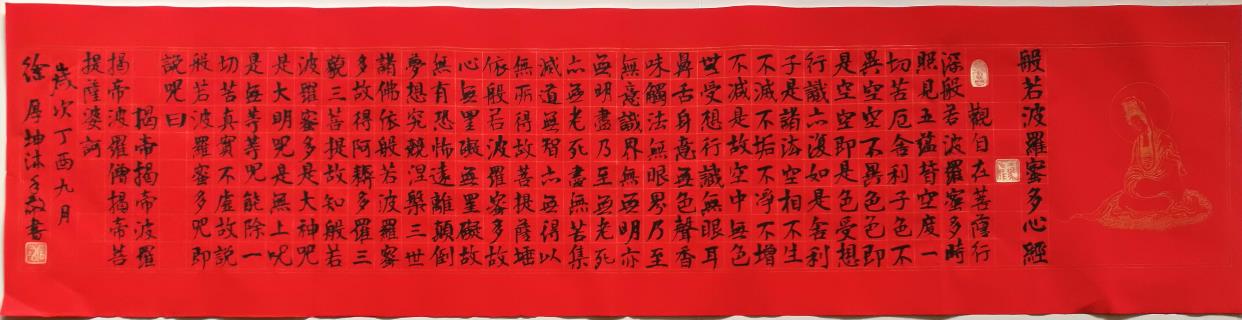 般若波羅蜜多心經
觀自在菩薩行
深般若波羅蜜多時
照見五蘊皆空度一
切苦厄舍利子色不
異空空不異色色即
是空空即是色受想
行識亦復如是舍利
子是諸法空相不生
不滅不垢不淨不增
不減是故空中無色
無受想行識無眼耳
鼻舌身意無色聲香
味觸法無眼界乃至
無意識界無無明亦
無無明盡乃至無老死
亦無老死盡無苦集
滅道無智亦無得以
無所得故菩提薩埵
依般若波羅蜜多故
心無罣礙無罣礙故
無有恐怖遠離顛倒
夢想究竟涅槃三世
諸佛依般若波羅蜜
多故得阿耨多羅三
藐三菩提故知般若
波羅蜜多是大神咒
是大明咒是無上咒
是無等等咒能除一
切苦真實不虛故說
般若波羅蜜多咒即
說咒曰
揭帝揭帝波羅
揭帝波羅僧揭帝菩
提薩婆訶
歲次丁酉九月
徐厚坤沐手敬書